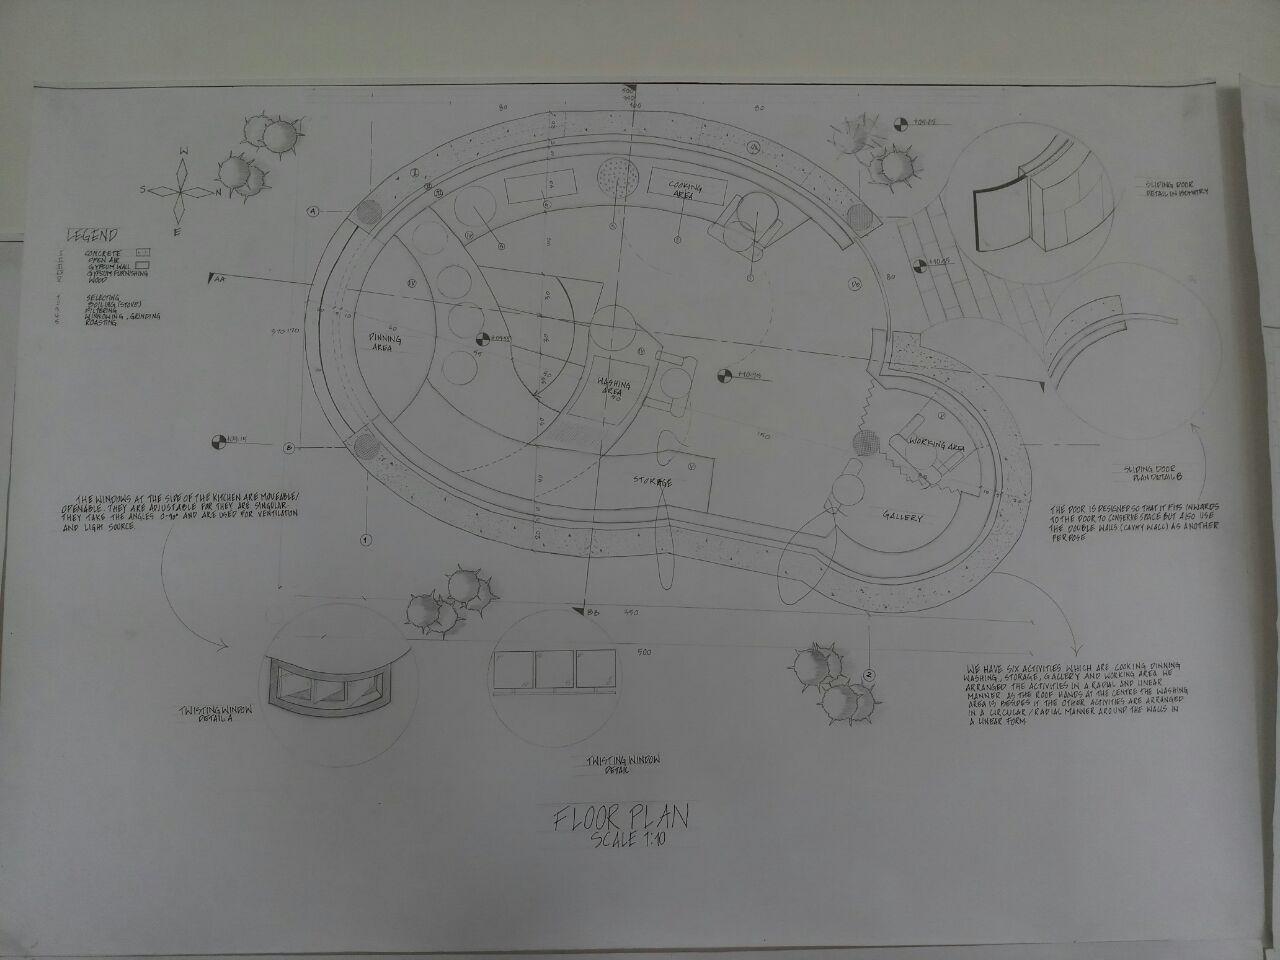 500
100
80
80
W
S
N
E
A
AA
LEGEND
CONCRETE
OPEN AIR
GYPSUM WALL
GYPSUM FURNISHING
WOOD
SELECTING
BOILING (STOVE)
FILTERING
WINNOWING, GRINDING
ROASTING
COOKING
AREA
DINNING
AREA
WASHING
AREA
STORAGE
WORKING AREA
GALLERY
150
80
B
1
2
BB
350
500
SLIDING DOOR
DETAIL IN ISOMETRY
SLIDING DOOR
PLAN DETAIL B
THE DOOR IS DESIGNED SO THAT IT FITS INWARDS
TO THE DOOR TO CONSERVE SPACE BUT ALSO USE
THE DOUBLE WALLS (CAVITY WALL) AS ANOTHER
PERPOSE
THE WINDOWS AT THE SIDE OF THE KITCHEN ARE MOVEABLE/
OPENABLE. THEY ARE ADJUSTABLE FOR THEY ARE SINGULAR
THEY TAKE THE ANGLES 0-90° AND ARE USED FOR VENTILATION
AND LIGHT SOURCE.
WE HAVE SIX ACTIVITIES WHICH ARE COOKING DINNING
WASHING, STORAGE, GALLERY AND WORKING AREA WE
ARRANGED THE ACTIVITIES IN A RADIAL AND LINEAR
MANNER. AS THE ROOF HANGS AT THE CENTRE THE WASHING
AREA IS BESIDES IT THE OTHER ACTIVITIES ARE ARRANGED
IN A CIRCULAR/RADIAL MANNER AROUND THE WALLS IN
A LINEAR FORM
TWISTING WINDOW
DETAIL A
TWISTING WINDOW
DETAIL
FLOOR PLAN
SCALE 1:10